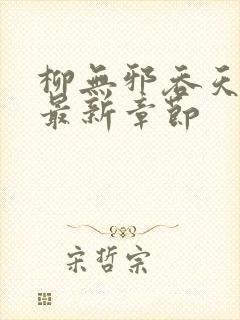 柳無邪吞天
最新章節
宋哲宗